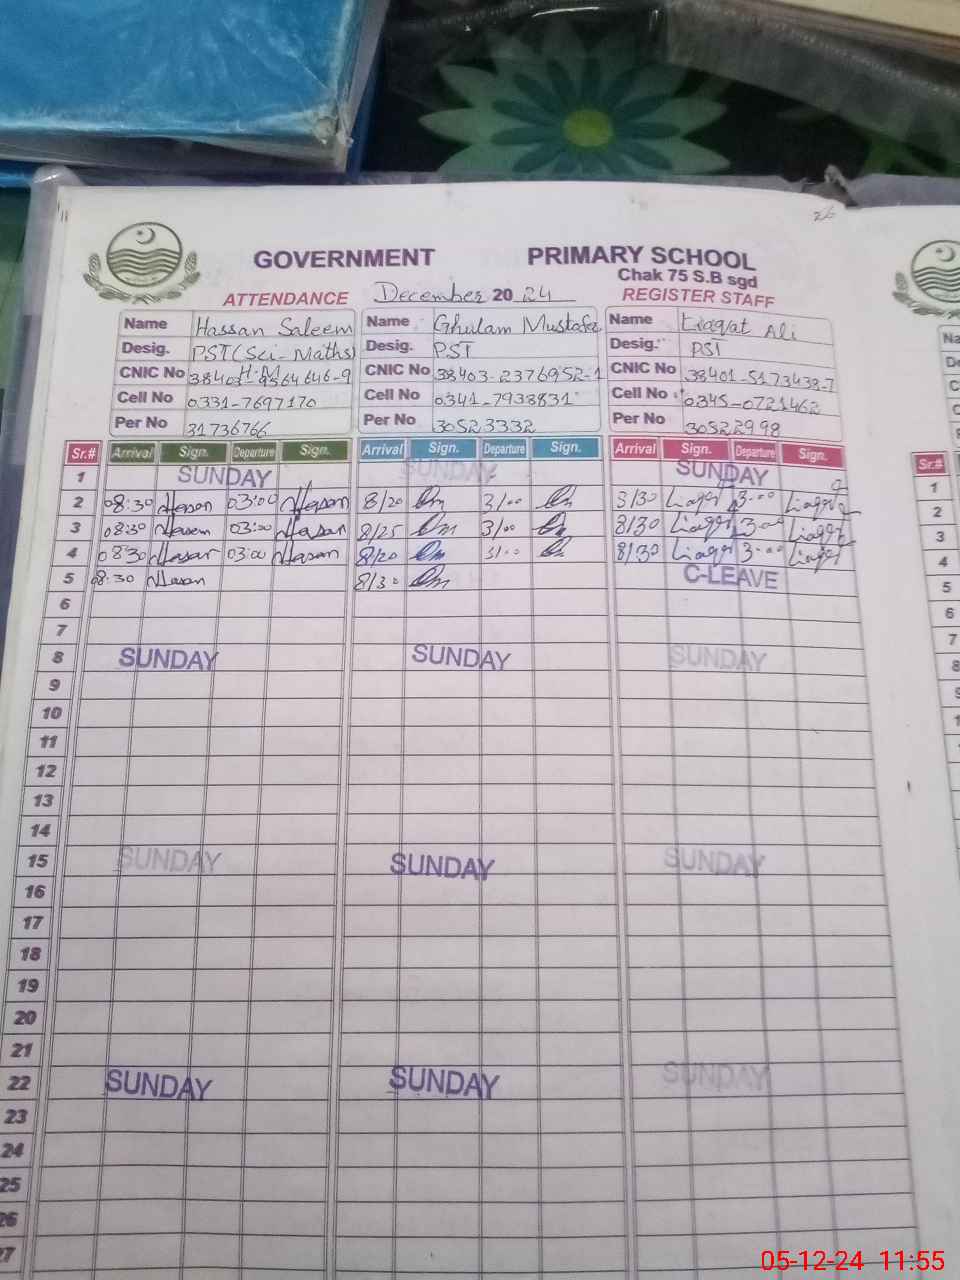 GOVERNMENT PRIMARY SCHOOL
Chak 75 S.B sgd
ATTENDANCE December 2024 REGISTER STAFF
Name Hassan Saleem Name Ghulam Mustafa Name Liaqat Ali
Desig. PST(Sci-Maths) Desig. PST Desig. PST
H.M
CNIC No CNIC No 38403-2376952-1 CNIC No 38401-5173438-7
Cell No 0331-7697170 Cell No 0341-7938831 Cell No 0345-0721462
Per No 31736766 Per No 30523332 Per No 30522998
Sr.# Arrival Sign. Departure Sign. Arrival Sign. Departure Sign. Arrival Sign. Departure Sign. Sr.#
1 SUNDAY SUNDAY SUNDAY 1
2 08:30 Hasan 03:00 Hasan 8/20 3/00 8/30 Liaqat 3-00 Liaqat 2
3 08:30 Hasan 03:00 Hasan 8/25 3/00 8/30 Liaqat 3-00 Liaqat 3
4 08:30 Hasan 03:00 Hasan 8/20 3/00 8/30 Liaqat 3-00 Liaqat 4
5 08:30 Hasan 8/30 C-LEAVE 5
6 6
7 7
8 SUNDAY SUNDAY SUNDAY 8
9
10
11
12
13
14
15 SUNDAY SUNDAY SUNDAY
16
17
18
19
20
21
22 SUNDAY SUNDAY SUNDAY
23
24
25
26
27
05-12-24 11:55